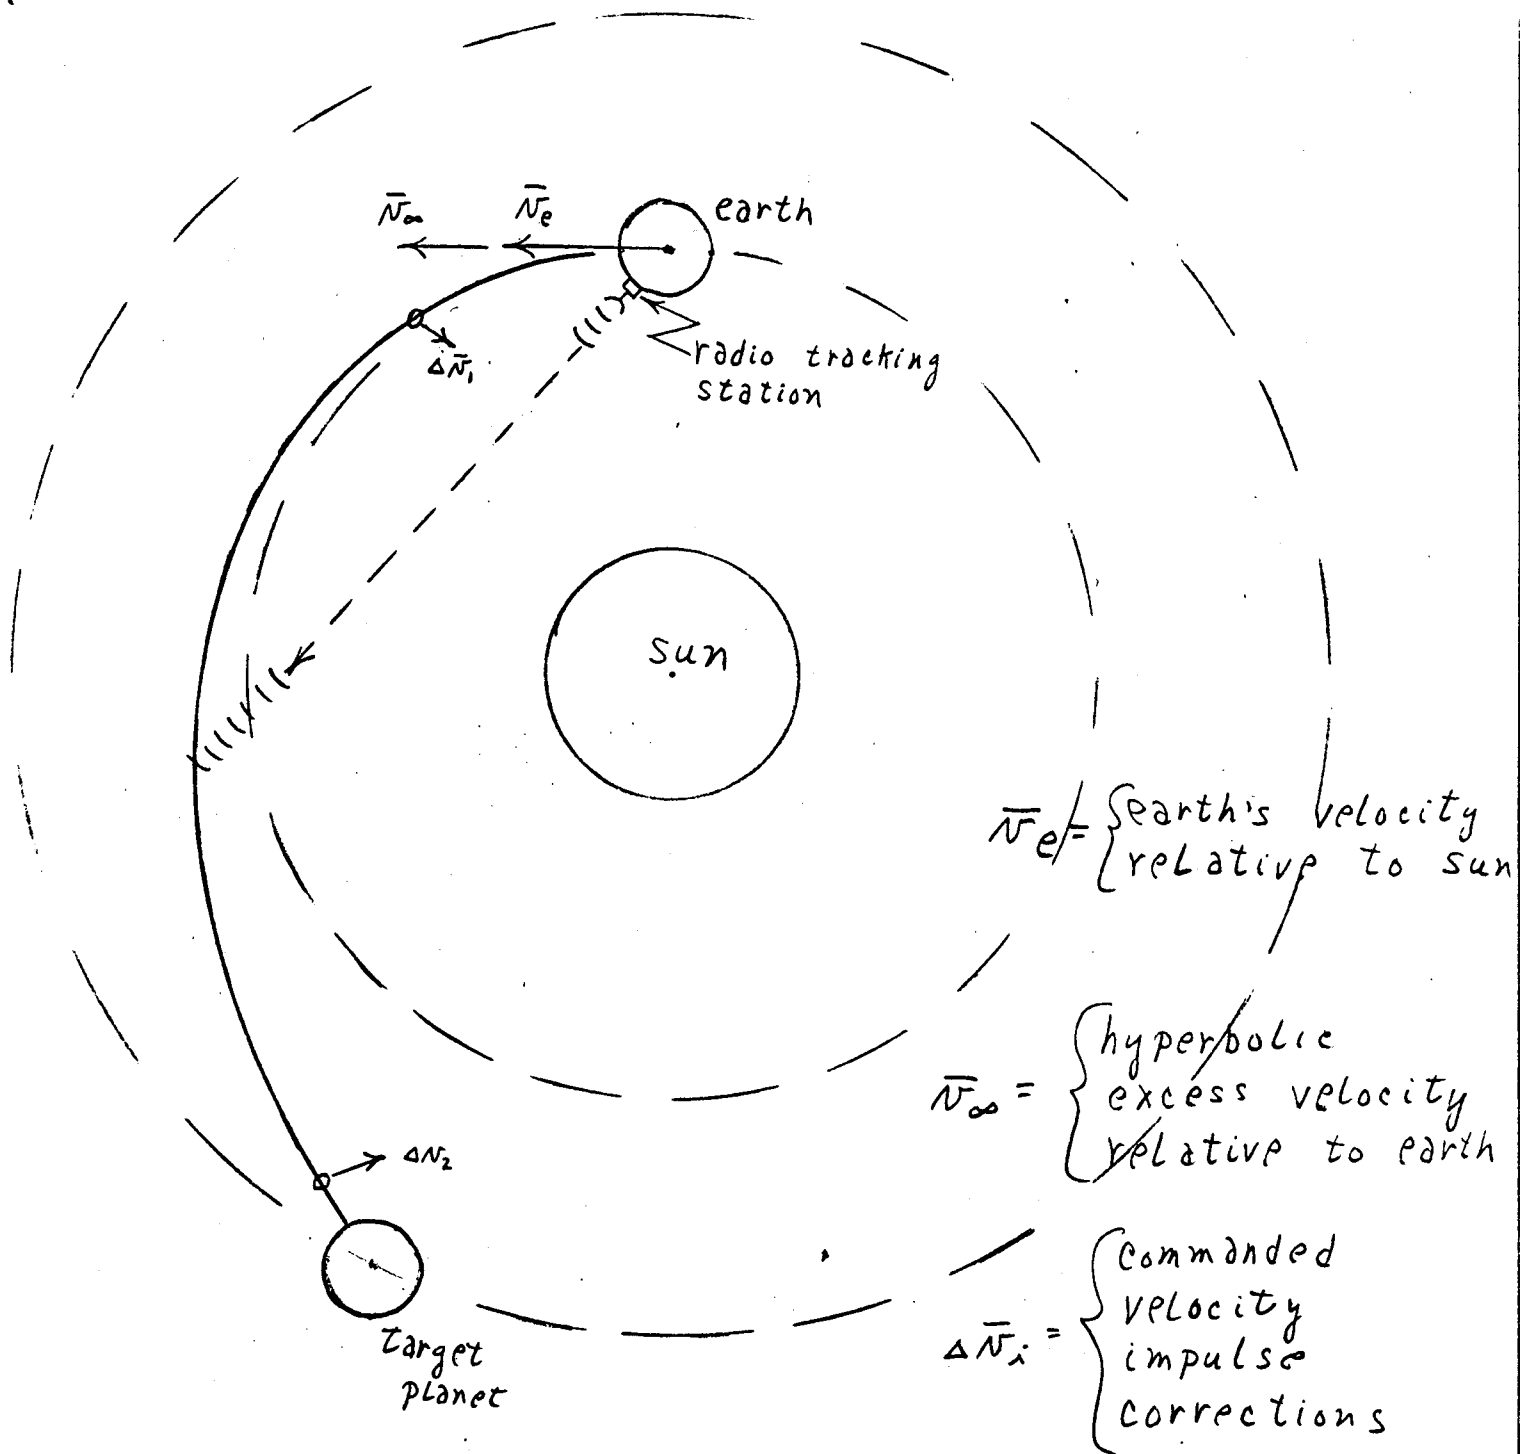 v̄∞ v̄e earth
Δv̄₁
radio tracking
station
sun
v̄e = { earth's velocity
relative to sun
v̄∞ = { hyperbolic
excess velocity
relative to earth
Δv₂
Δv̄i = { commanded
velocity
impulse
corrections
target
planet